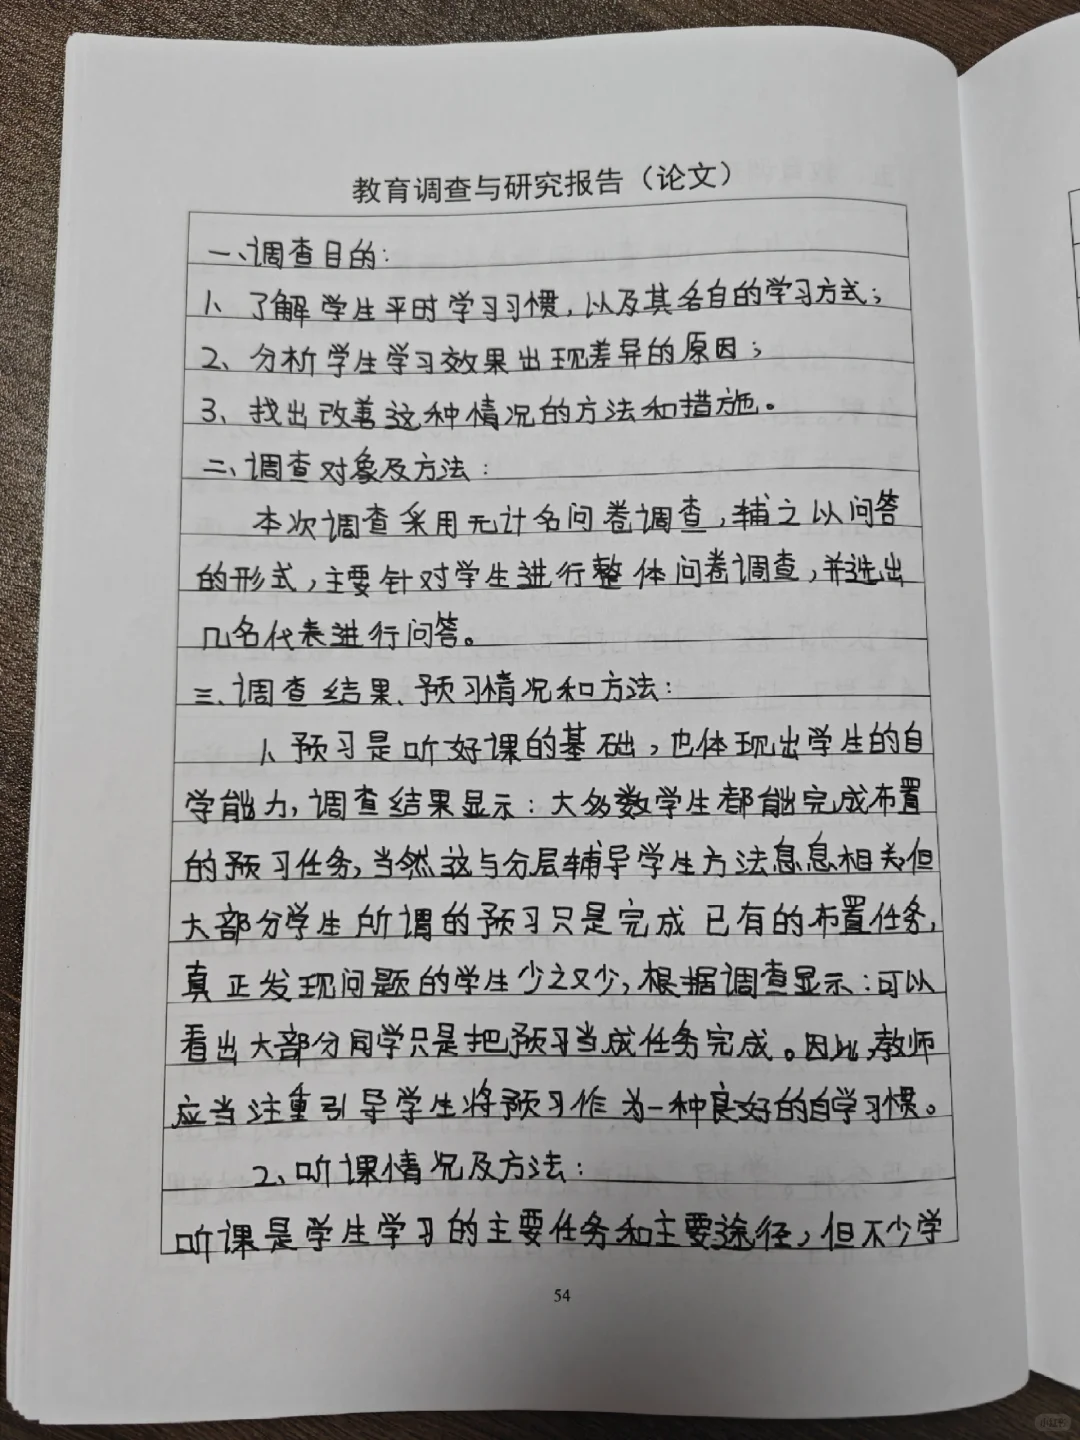 教育调查与研究报告（论文）
一、调查目的：
1、了解学生平时学习习惯，以及其各自的学习方式；
2、分析学生学习效果出现差异的原因；
3、找出改善这种情况的方法和措施。
二、调查对象及方法：
本次调查采用无计名问卷调查，辅之以问答
的形式，主要针对学生进行整体问卷调查，并选出
几名代表进行问答。
三、调查结果、预习情况和方法：
1、预习是听好课的基础，也体现出学生的自
学能力，调查结果显示：大多数学生都能完成布置
的预习任务，当然这与分层辅导学生方法息息相关，但
大部分学生所谓的预习只是完成已有的布置任务，
真正发现问题的学生少之又少，根据调查显示：可以
看出大部分同学只是把预习当成任务完成。因此，教师
应当注重引导学生将预习作为一种良好的自学习惯。
2、听课情况及方法：
听课是学生学习的主要任务和主要途径，但不少学
54
小红书